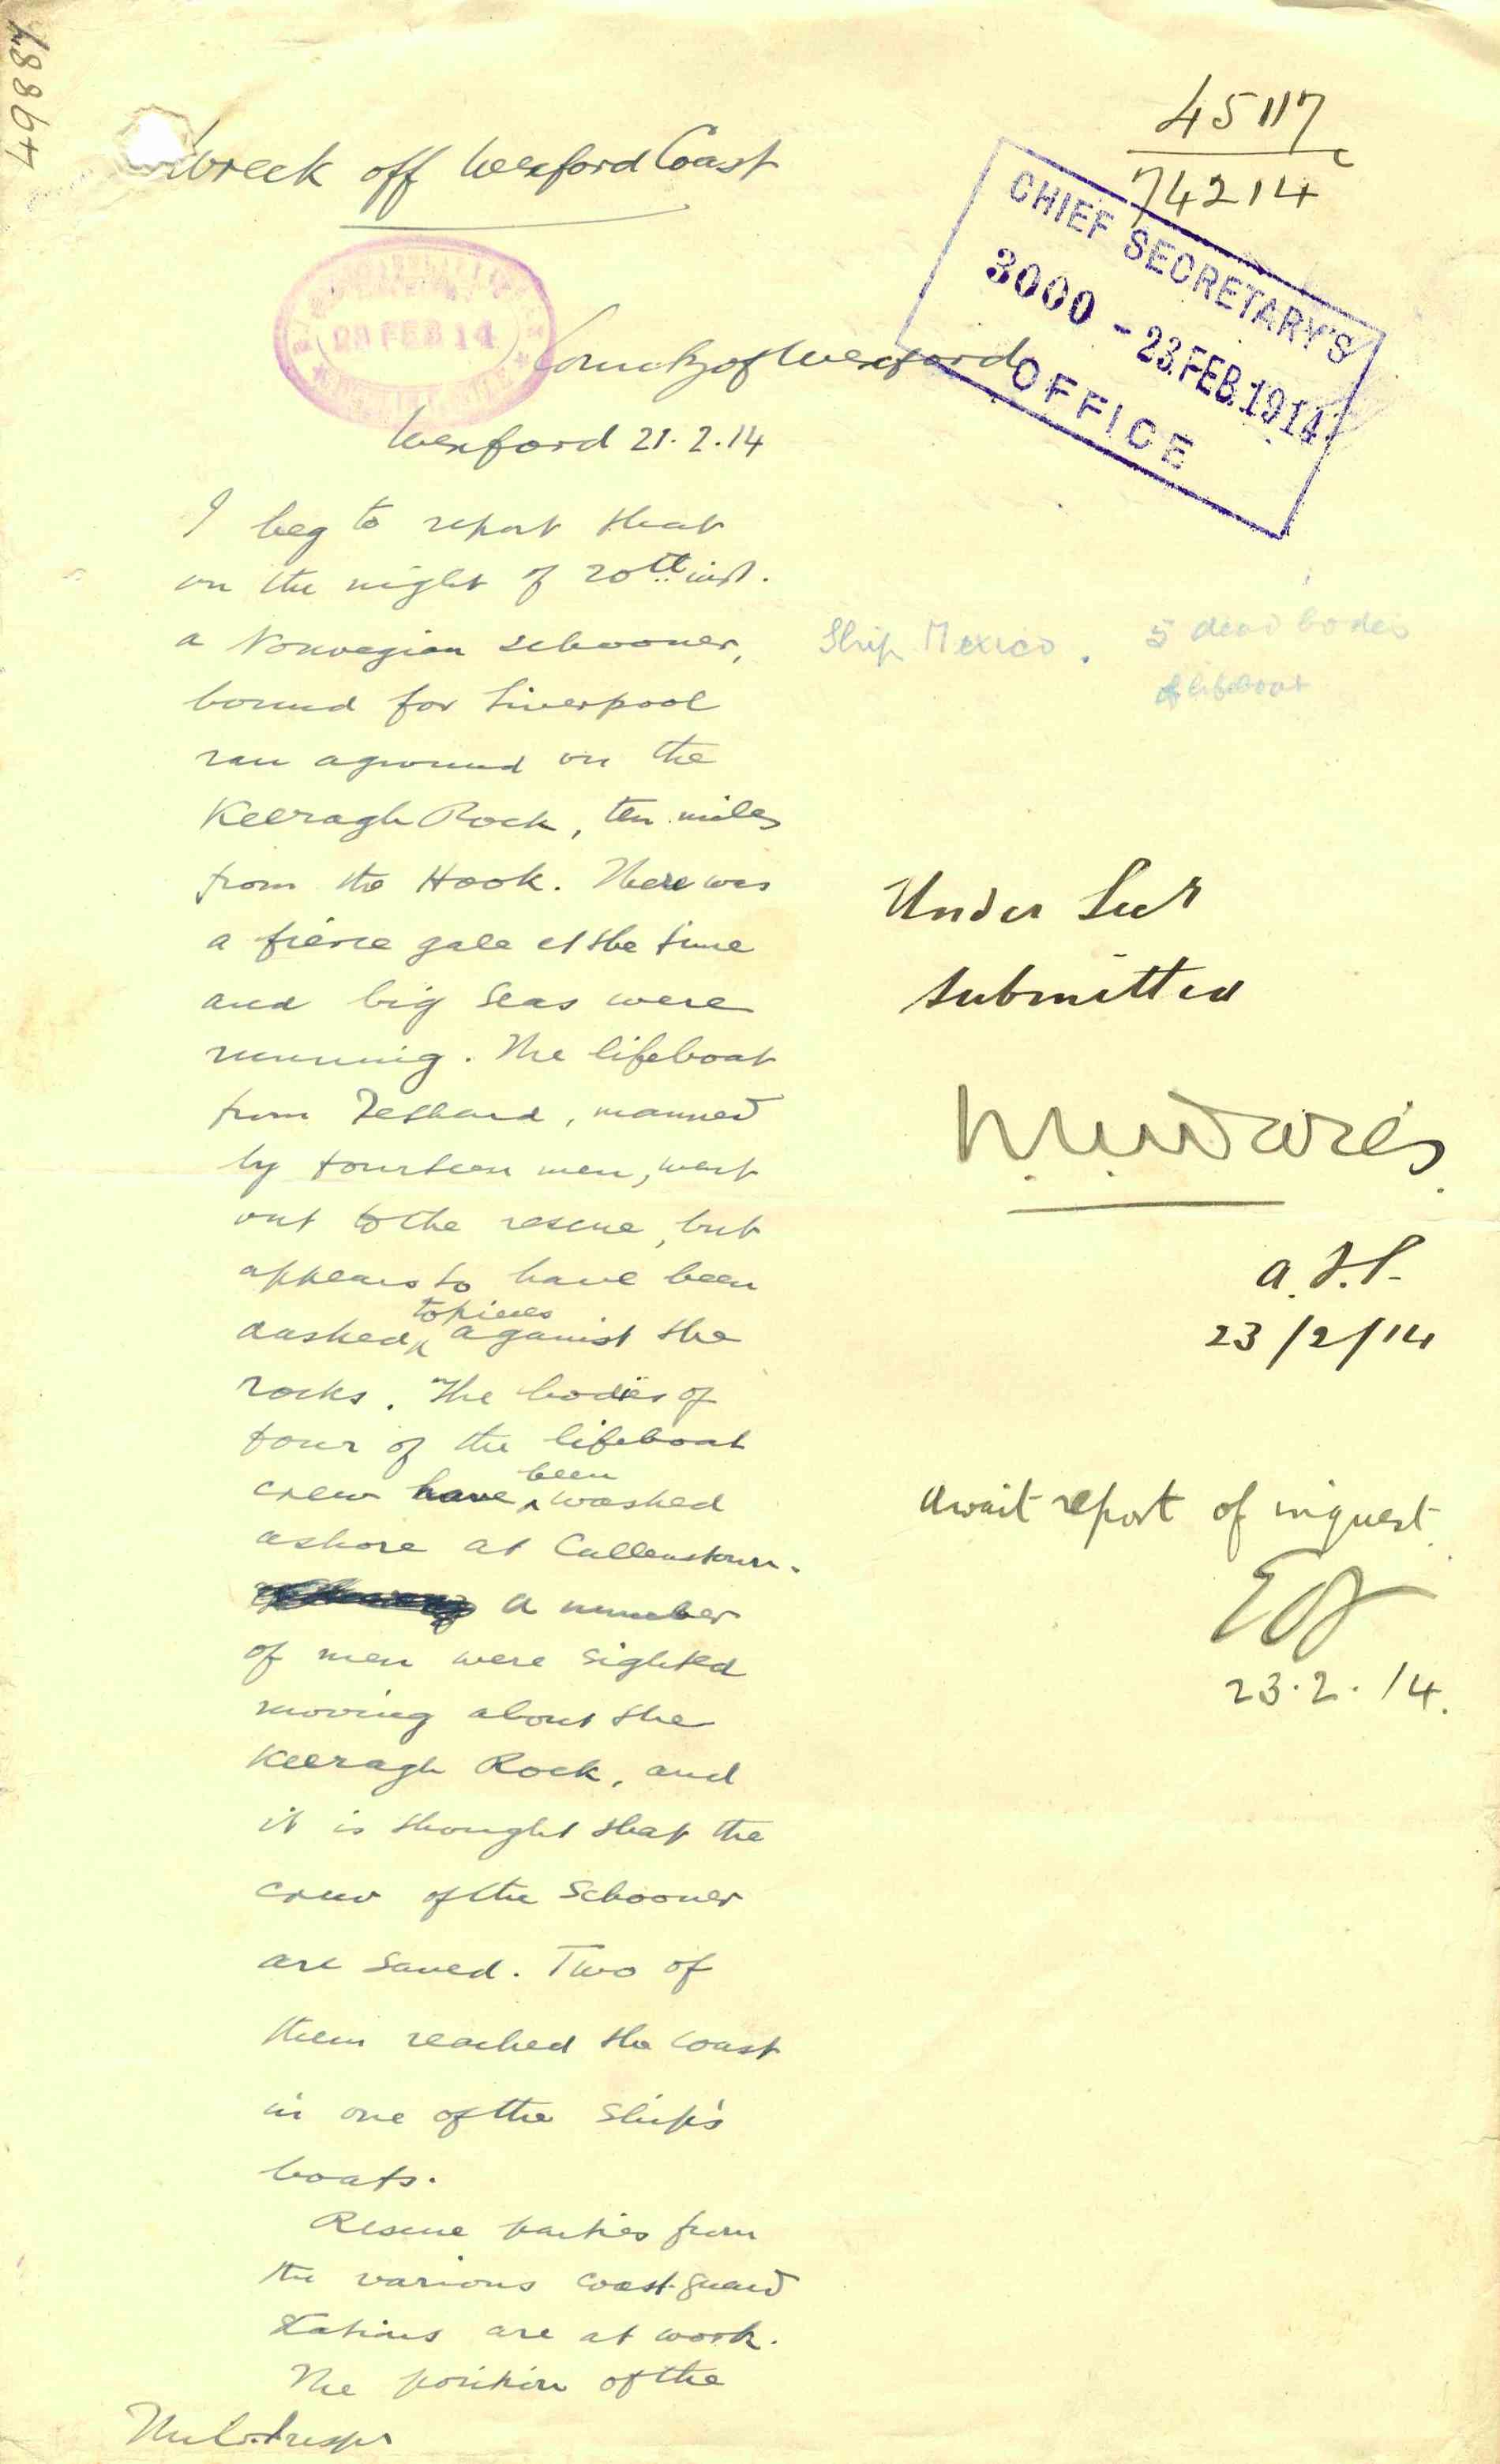 48864
Wreck off Wexford Coast
45117
74214
CHIEF SECRETARY'S
3000 - 23. FEB. 1914
OFFICE
23 FEB 14
County of Wexford
Wexford 21.2.14
I beg to report that
on the night of 20th inst.
a Norwegian schooner,
bound for Liverpool
ran aground on the
Keeragh Rock, ten miles
from the Hook. There was
a fierce gale at the time
and big seas were
running. The lifeboat
from Fethard, manned
by fourteen men, went
out to the rescue, but
appears to have been
dashed to pieces against the
rocks. The bodies of
four of the lifeboat
crew have been washed
ashore at Cullenstown.
A number
of men were sighted
moving about the
Keeragh Rock, and
it is thought that the
crew of the Schooner
are saved. Two of
them reached the coast
in one of the ship's
boats.
Rescue parties from
the various coastguard
stations are at work.
The position of the
Ship Mexico. 5 dead bodies
of lifeboat
Under Secr
Submitted
a.I.G.
23/2/14
Await report of inquest.
23.2.14.